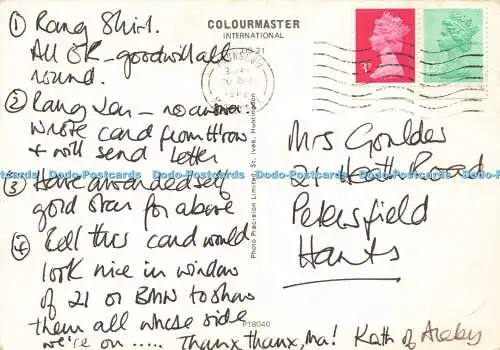 ① Rang Shirl.
All OK – goodwill all
round.
② Rang Len – no answer.
Wrote card from H'row
+ will send letter
③ Have awarded self
gold star for above
④ Tell this card would
look nice in window
of 21 or BMN to show
them all whose side
we're on ..... Thanx thanx, Ma! Kath of Araby
COLOURMASTER
INTERNATIONAL
Photo Precision Limited, St. Ives, Huntingdon
PT8040
Mrs Goulder
21 Heath Road
Petersfield
Hants
Dodo-Postcards Dodo-Postcards Dodo-Postcards Dodo-Postcards